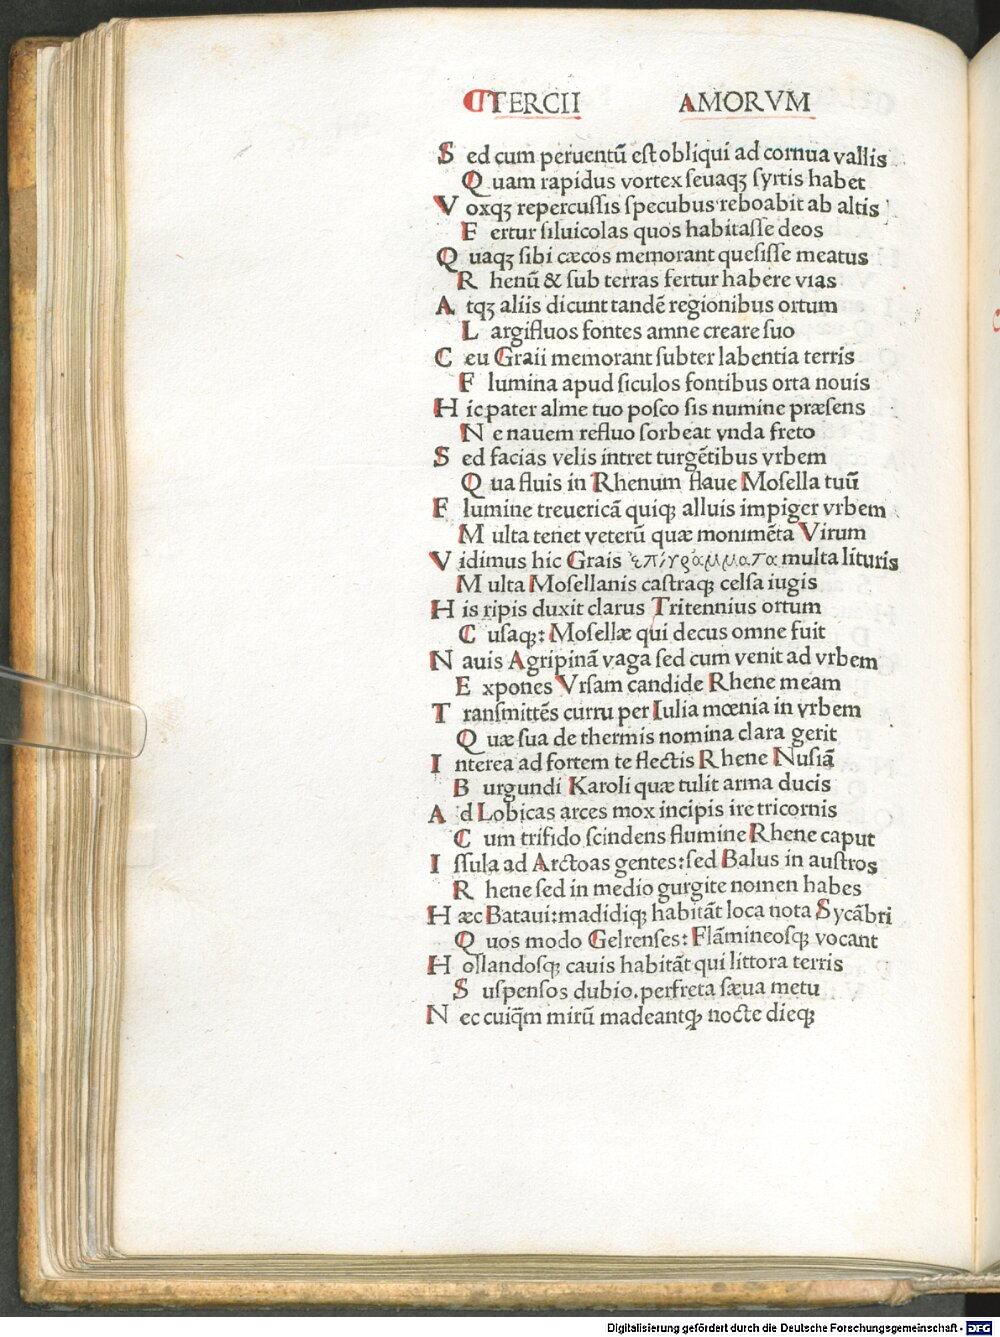 TERCII AMORVM
S ed cum peruentũ eſt obliqui ad cornua vallis
Q uam rapidus vortex ſeuaqꝫ ſyrtis habet
V oxqꝫ repercuſſis ſpecubus reboabit ab altis
F ertur ſiluicolas quos habitaſſe deos
Q uaqꝫ ſibi cæcos memorant queſiſſe meatus
R henũ & ſub terras fertur habere vias
A tqꝫ aliis dicunt tandẽ regionibus ortum
L argifluos fontes amne creare ſuo
C eu Graii memorant ſubter labentia terris
F lumina apud ſiculos fontibus orta nouis
H ic pater alme tuo poſco ſis numine præſens
N e nauem refluo ſorbeat vnda freto
S ed facias velis intret turgẽtibus vrbem
Q ua fluis in Rhenum flaue Moſella tuũ
F lumine treuericã quiqꝫ alluis impiger vrbem
M ulta tenet veterũ quæ monimẽta Virum
V idimus hic Grais ἐπίγράμματα multa lituris
M ulta Moſellanis caſtraqꝫ celſa iugis
H is ripis duxit clarus Tritennius ortum
C uſaqꝫ: Moſellæ qui decus omne fuit
N auis Agripinã vaga ſed cum venit ad vrbem
E xpones Vrſam candide Rhene meam
T ranſmittẽs curru per Iulia mœnia in vrbem
Q uæ ſua de thermis nomina clara gerit
I nterea ad fortem te flectis Rhene Nuſiã
B urgundi Karoli quæ tulit arma ducis
A d Lobicas arces mox incipis ire tricornis
C um trifido ſcindens flumine Rhene caput
I ſſula ad Arctoas gentes: ſed Balus in auſtros
R hene ſed in medio gurgite nomen habes
H æc Bataui: madidiqꝫ habitãt loca nota Sycãbri
Q uos modo Gelrenſes: Flãmineoſqꝫ vocant
H ollandoſqꝫ cauis habitãt qui littora terris
S uſpenſos dubio. perfreta ſæua metu
N ec cuiq̃m mirũ madeantqꝫ nocte dieqꝫ
Digitalisierung gefördert durch die Deutsche Forschungsgemeinschaft - DFG